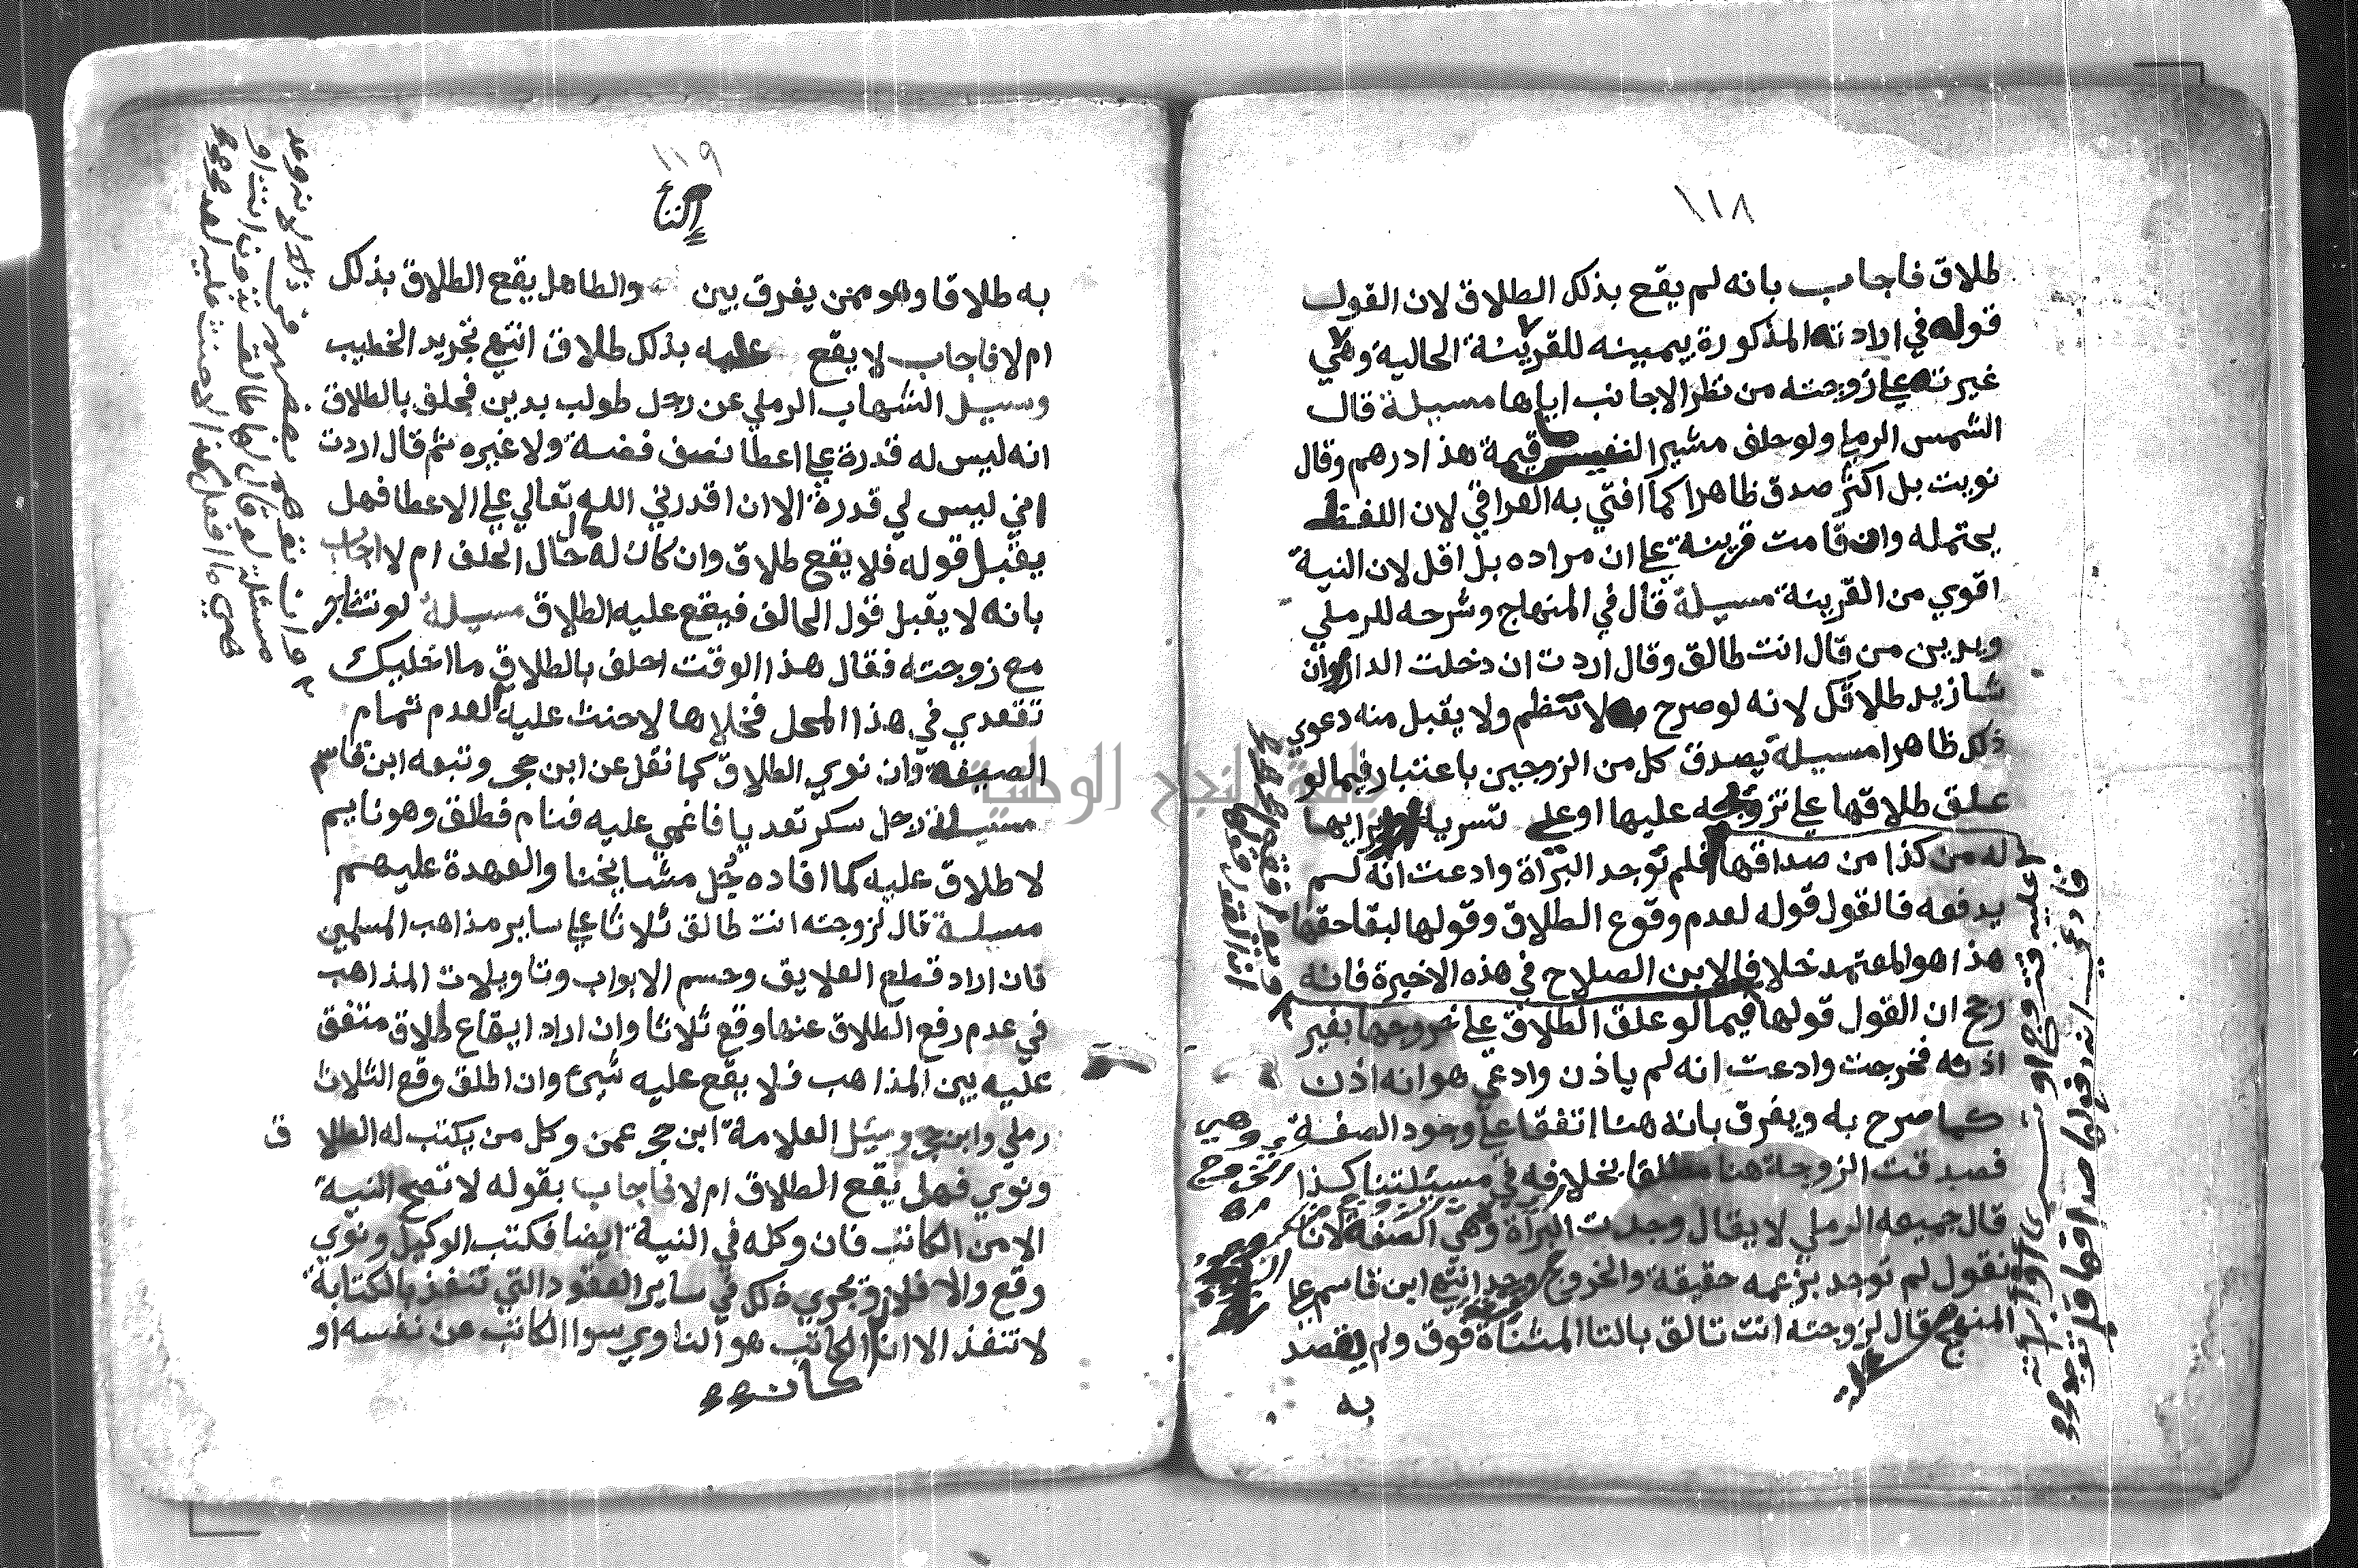 ١١٨
طلاق فاجاب بانه لم يقع بذلك الطلاق لان القول
قوله في ارادته المذكورة بيمينه للقرينة الحالية وهي
غيرته علي زوجته من نظر الاجانب اياها مسيلة قال
الشمس الرملي ولو حلف مشيرا لنفيس قيمة هذا درهم وقال
نويت بل اكثر صدق ظاهرا كما افتي به العراقي لان اللفظ
يحتمله وان قامت قرينة علي ان مراده بل اقل لان النية
اقوي من القرينة مسيلة قال في المنهاج وشرحه للرملي
ويدين من قال انت طالق وقال اردت ان دخلت الدار وان
شا زيد طلاقك لانه لو صرح به لانتظم ولا يقبل منه دعوي
ذلك ظاهرا مسيلة يصدق كل من الزوجين باعتبار فيما لو
علق طلاقها علي تزوجه عليها او علي تسريه
له من كذا من صداقها فلم توجد البراة وادعت انه لم
يدفعه فالقول قوله لعدم وقوع الطلاق وقولها لبقا حقها
هذا هو المعتمد خلافا لابن الصلاح في هذه الاخيرة فانه
رجح ان القول قولها فيما لو علق الطلاق علي خروجها بغير
اذنه فخرجت وادعت انه لم ياذن وادعي هو انه اذن
كما صرح به ويفرق بانه هنا اتفقا علي وجود الصفة
فصدقت الزوجة هنا مطلقا بخلافه في مسيلتنا كذا
قال جميعه الرملي لا يقال وجدت البراة وهي الصفة لانا
نقول لم توجد بزعمه حقيقة والخروج وجد انتهي ابن قاسم علي
المنهج قال لزوجته انت تالق بالتا المثناة فوق ولم يقصد
به
فادعي انه دفع لها صداقها فلم توجد
١١٩
به طلاقا وهو ممن يفرق بين والطا هل يقع الطلاق بذلك
ام لا فاجاب لا يقع عليه بذلك طلاق انتهي تجريد الخطيب
وسيل الشهاب الرملي عن رجل طولب بدين فحلف بالطلاق
انه ليس له قدرة علي اعطا نصف فضة ولا غيره ثم قال اردت
اني ليس لي قدرة الا ان اقدرني الله تعالي علي الاعطا فهل
يقبل قوله فلا يقع طلاق وان كان له مال حال الحلف ام لا اجاب
بانه لا يقبل قول الحالف فيقع عليه الطلاق مسيلة لو تشاجر
مع زوجته فقال هذا الوقت احلف بالطلاق ما اخليك
تقعدي في هذا المحل فخلاها لا حنث عليه لعدم تمام
الصيغة وان نوي الطلاق كما نقل عن ابن حجر وتبعه ابن قاسم
مسيلة رجل سكر تعديا فاغمي عليه فنام فطلق وهو نايم
لا طلاق عليه كما افاده جل مشايخنا والعهدة عليهم
مسيلة قال لزوجته انت طالق ثلاثا علي ساير مذاهب المسلمين
فان اراد قطع العلايق وحسم الابواب وتاويلات المذاهب
في عدم رفع الطلاق عنها وقع ثلاثا وان اراد ايقاع طلاق متفق
عليه بين المذاهب فلا يقع عليه شي وان اطلق وقع الثلاث
رملي وابن حجر وسيل العلامة ابن حجر عمن وكل من يكتب له الطلاق
ونوي فهل يقع الطلاق ام لا فاجاب بقوله لا تصح النية
الا من الكاتب فان وكله في النية ايضا فكتب الوكيل ونوي
وقع والا فلا ويجري ذلك في ساير العقود التي تنفذ بالكتابة
لا تنفذ الا ان كان الكاتب هو الناوي سوا الكاتب عن نفسه او
جامعة النجاح الوطنية